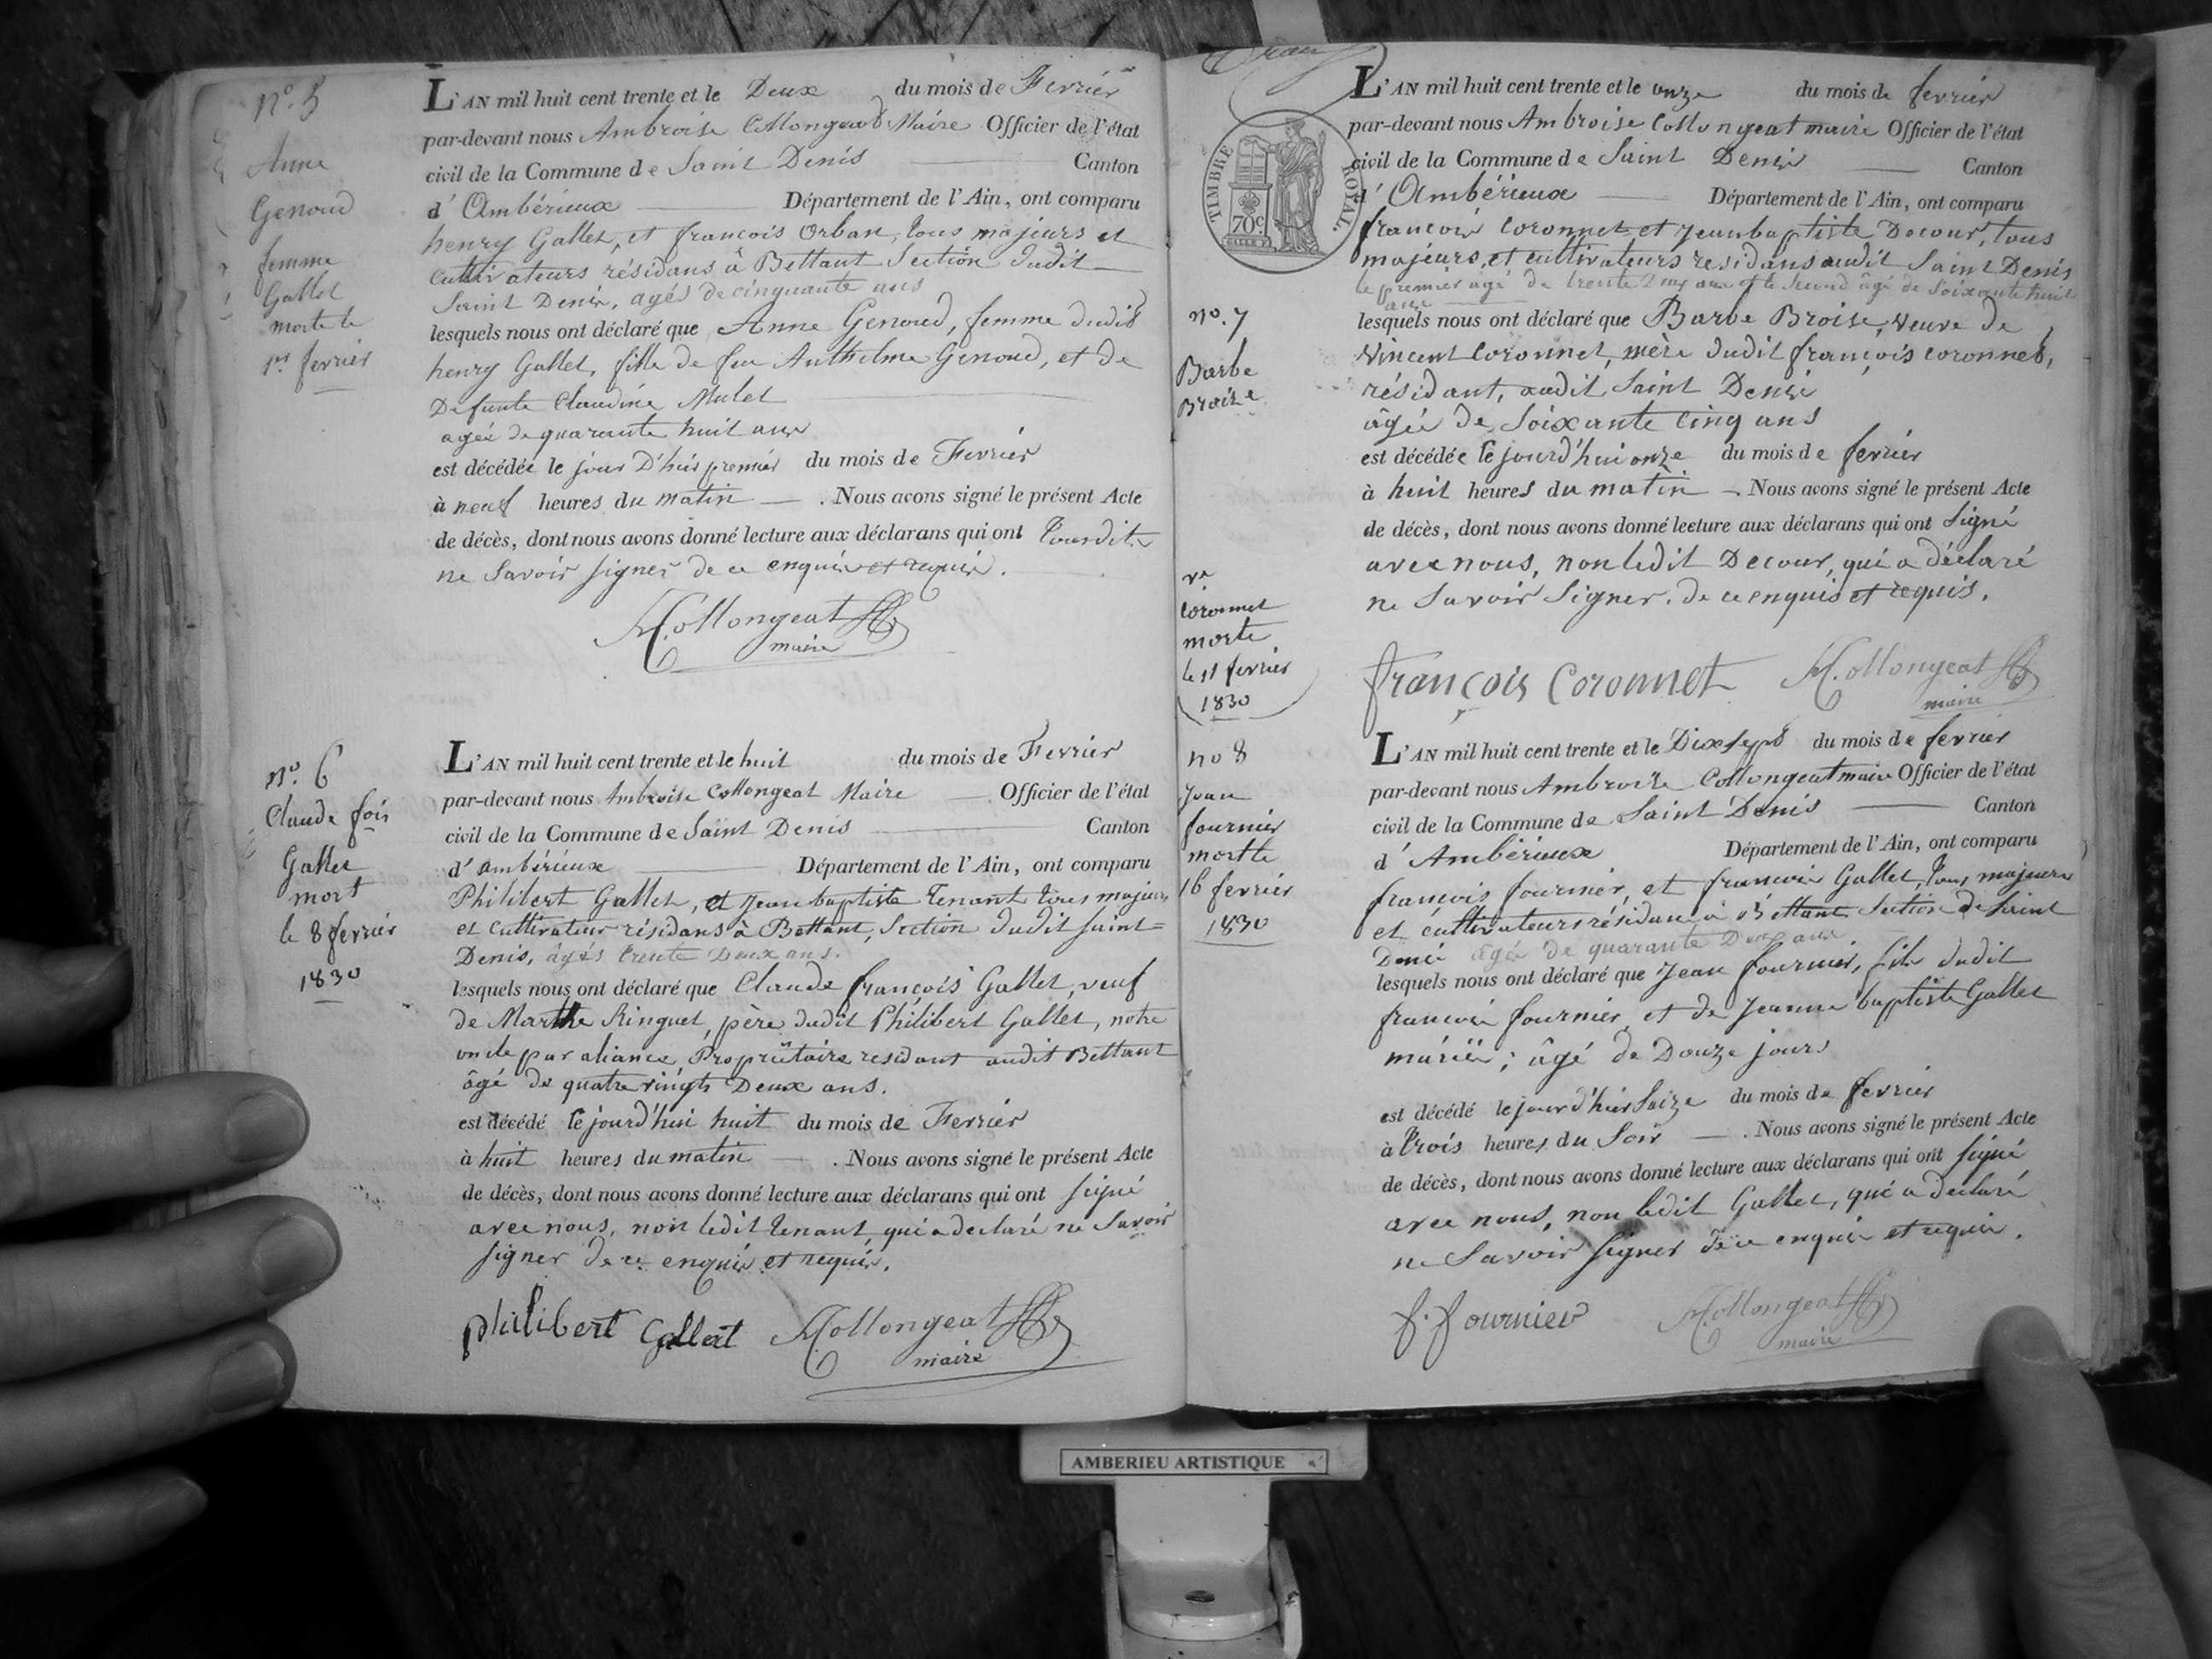 n°. 5
Anne
Genoud
femme
Gallet
morte le
1er fevrier
L'AN mil huit cent trente et le Deux du mois de Fevrier
par-devant nous Ambroise Collongeat Maire Officier de l'état
civil de la Commune de Saint Denis Canton
d'Ambérieux Département de l'Ain, ont comparu
henry Gallet, et francois Orban, tous majeurs et
Cultivateurs résidans à Bettant Section dudit
Saint Denis, agés de cinquante ans
lesquels nous ont déclaré que Anne Genoud, femme dudit
henry Gallet, fille de feu Anthelme Genoud, et de
Defunte Claudine Mulet
agée de quarante huit ans
est décédée le jour D'hier premier du mois de Fevrier
à neuf heures du matin . Nous avons signé le présent Acte
de décès, dont nous avons donné lecture aux déclarans qui ont
ne Savoir signer de ce enquis et requis.
Collongeat
maire
n°. 6
Claude fois
Gallet
mort
le 8 fevrier
1830
L'AN mil huit cent trente et le huit du mois de Fevrier
par-devant nous Ambroise Collongeat Maire Officier de l'état
civil de la Commune de Saint Denis Canton
d'ambérieux Département de l'Ain, ont comparu
Philibert Gallet, et Jean baptiste Tenant tous majeurs
et Cultivateur résidans à Bettant, Section dudit saint=
Denis, âgés trente Deux ans.
lesquels nous ont déclaré que Claude françois Gallet, veuf
de Marthe Ringuet, père dudit Philibert Gallet, notre
oncle par aliance, Propriètaire residant audit Bettant
âgé de quatre vingts Deux ans.
est décédé le jourd'hui huit du mois de Fevrier
à huit heures du matin . Nous avons signé le présent Acte
de décès, dont nous avons donné lecture aux déclarans qui ont signé
avec nous, non ledit Tenant, qui a declaré ne Savoir
signer de ce enquis et requis.
philibert Gallet Collongeat
maire
TIMBRE ROYAL
70c.
n°. 7
Barbe
Broise
ve
Coronnet
morte
le 11 fevrier
1830
L'AN mil huit cent trente et le onze du mois de fevrier
par-devant nous Ambroise Collongeat maire Officier de l'état
civil de la Commune de Saint Denis Canton
d'Ambérieux Département de l'Ain, ont comparu
francois Coronnet et Jean baptiste Decour, tous
majeurs, et cultivateurs residans audit Saint Denis
le premier âgé de trente ans et le second âgé de Soixante huit
ans
lesquels nous ont déclaré que Barbe Broise, veuve de
Vincent Coronnet, mère dudit françois coronnet,
résidant, audit Saint Denis
âgée de Soixante Cinq ans
est décédée le jourd'hui onze du mois de fevrier
à huit heures du matin . Nous avons signé le présent Acte
de décès, dont nous avons donné lecture aux déclarans qui ont signé
avec nous, non ledit Decour, qui a déclaré
ne Savoir Signer, de ce enquis et requis.
françois Coronnet Collongeat
maire
no 8
Jean
fournier
mort le
16 fevrier
1830
L'AN mil huit cent trente et le Dix sept du mois de fevrier
par-devant nous Ambroise Collongeat maire Officier de l'état
civil de la Commune de Saint Denis Canton
d'Ambérieux Département de l'Ain, ont comparu
françois fournier, et francois Gallet, tous majeurs
et cultivateurs résidans à Bettant Section de Saint
Denis âgés de quarante Deux ans
lesquels nous ont déclaré que Jean fournier, fils dudit
francois fournier et de Jeanne baptiste Gallet
mariés; âgé de Douze jours
est décédé le jour d'hier Seize du mois de fevrier
à trois heures du Soir . Nous avons signé le présent Acte
de décès, dont nous avons donné lecture aux déclarans qui ont signé
avec nous, non ledit Gallet, qui a declaré
ne Savoir signer de ce enquis et requis.
f. fournier Collongeat
maire
AMBERIEU ARTISTIQUE